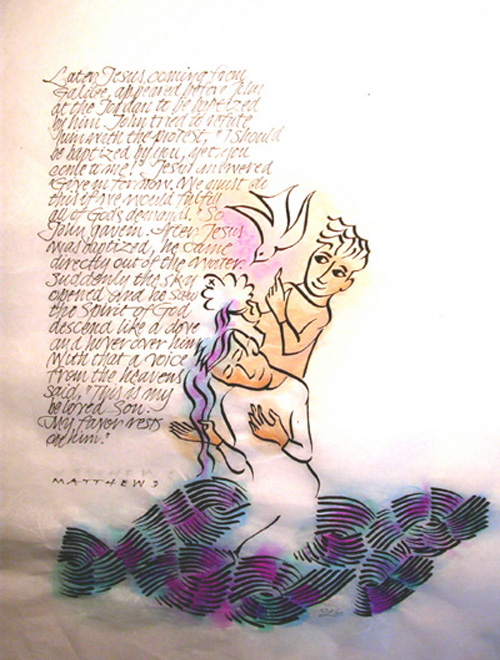 Later Jesus, coming from
Galilee, appeared before John
at the Jordan to be baptized
by him. John tried to refute
him with the protest, "I should
be baptized by you, yet you
come to me!" Jesus answered
"Give in for now. We must do
this if we would fulfill
all of God's demands." So
John gave in. After Jesus
was baptized, he came
directly out of the water.
Suddenly the sky
opened and he saw
the Spirit of God
descend like a dove
and hover over him.
With that a voice
from the heavens
said, "This is my
beloved Son.
My favor rests
on him."
MATTHEW 3